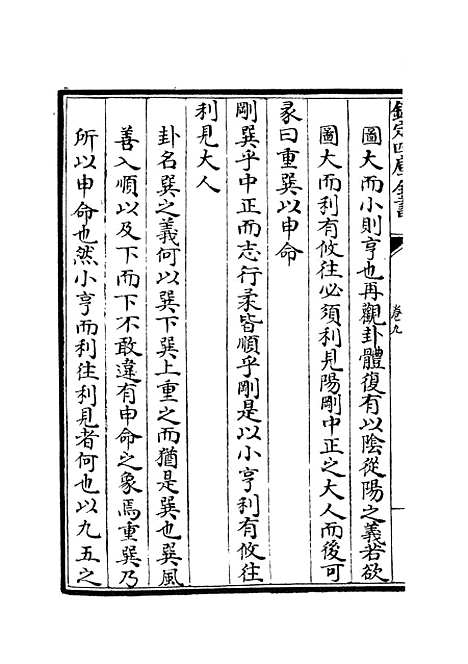 欽定四庫全書
卷九
圖大而小則亨也再觀卦體復有以陰從陽之義若欲
圖大而利有攸往必須利見陽剛中正之大人而後可
彖曰重巽以申命
剛巽乎中正而志行柔皆順乎剛是以小亨利有攸往
利見大人
卦名巽之義何以巽下巽上重之而猶是巽也巽風
善入順以及下而下不敢違有申命之象焉重巽乃
所以申命也然小亨而利往利見者何也以九五之